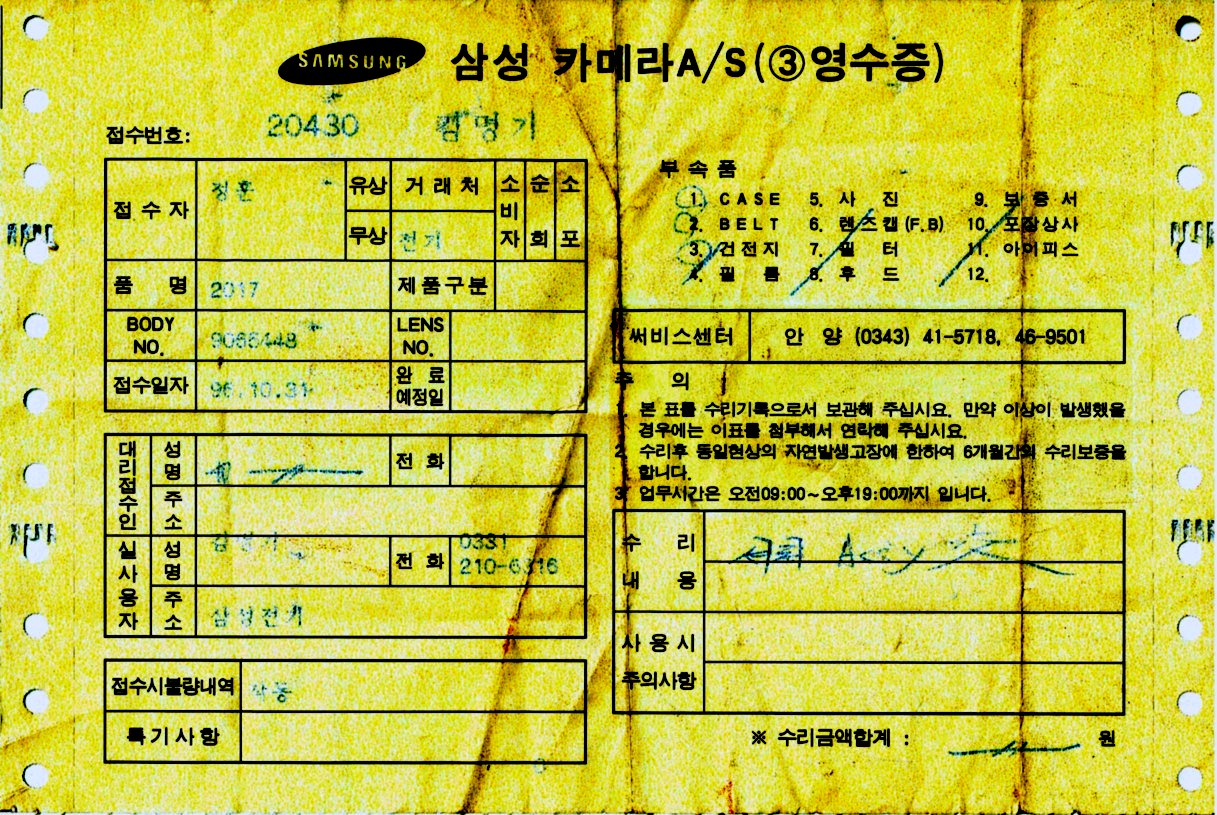 SAMSUNG 삼성 카메라A/S(③영수증)
접수번호: 20430
접수자 정훈 유상 거래처 소비자 순회 소포
무상 전기
품명 2017 제품구분
BODY NO. 9066448 LENS NO.
접수일자 96.10.31 완료예정일
대리접수인 성명 전화
주소
실사용자 성명 전화 0331 210-6316
주소 삼성전기
접수시불량내역 작동
특기사항
부속품
1. CASE 5. 사진 9. 보증서
2. BELT 6. 렌즈캡(F.B) 10. 포장상사
3. 건전지 7. 필터 11. 아이피스
4. 필름 8. 후드 12.
써비스센터 안양 (0343) 41-5718, 46-9501
주의
1. 본 표를 수리기록으로서 보관해 주십시요. 만약 이상이 발생했을
경우에는 이표를 첨부해서 연락해 주십시요.
2. 수리후 동일현상의 자연발생고장에 한하여 6개월간의 수리보증을
합니다.
3. 업무시간은 오전09:00~오후19:00까지 입니다.
수리내용
사용시주의사항
※ 수리금액합계 : 원